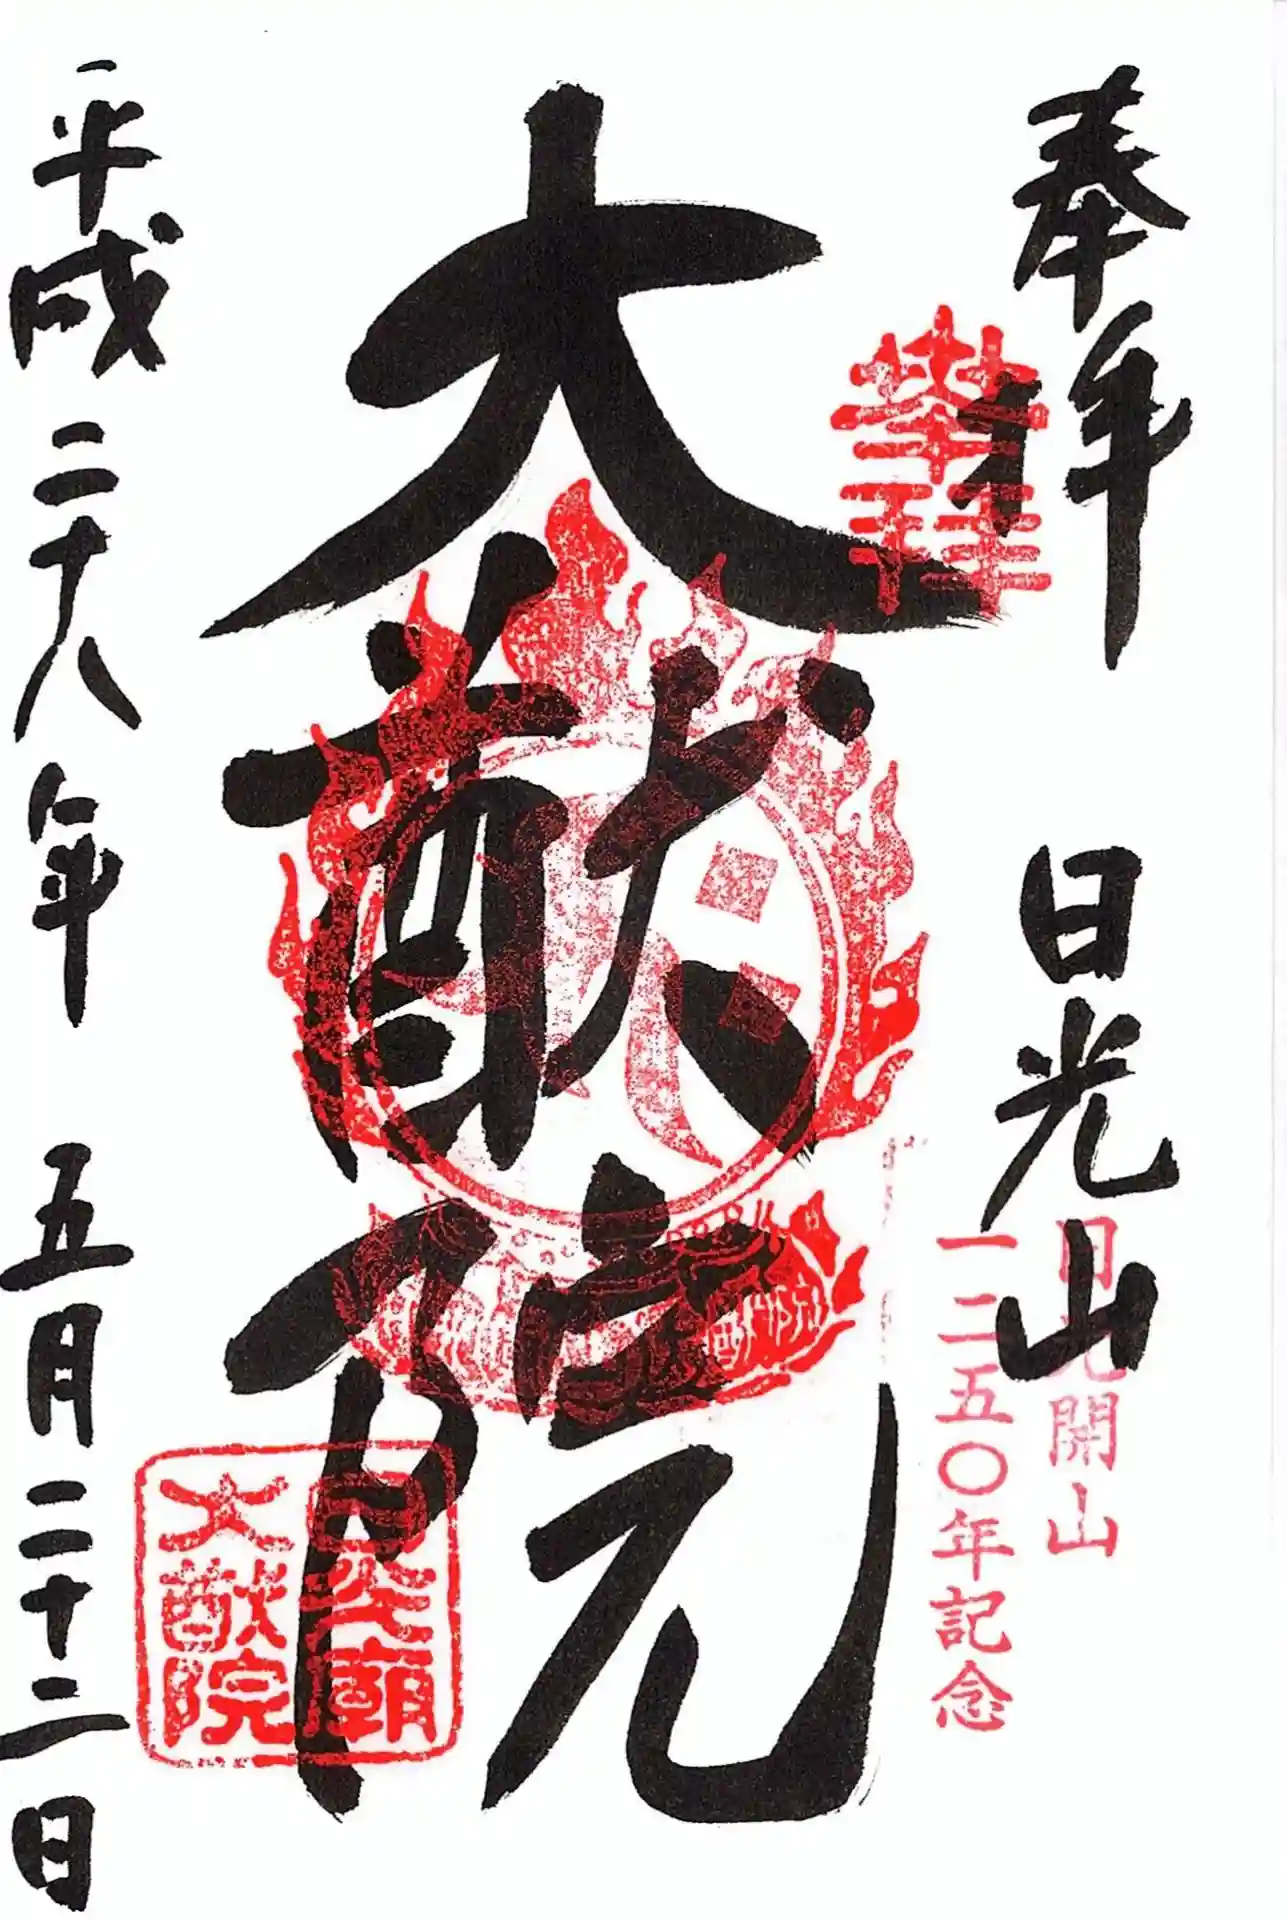 奉拝
奉拝
日光山
日光開山
一二五〇年記念
大猷院
日光廟
大猷院
平成二十八年 五月二十二日